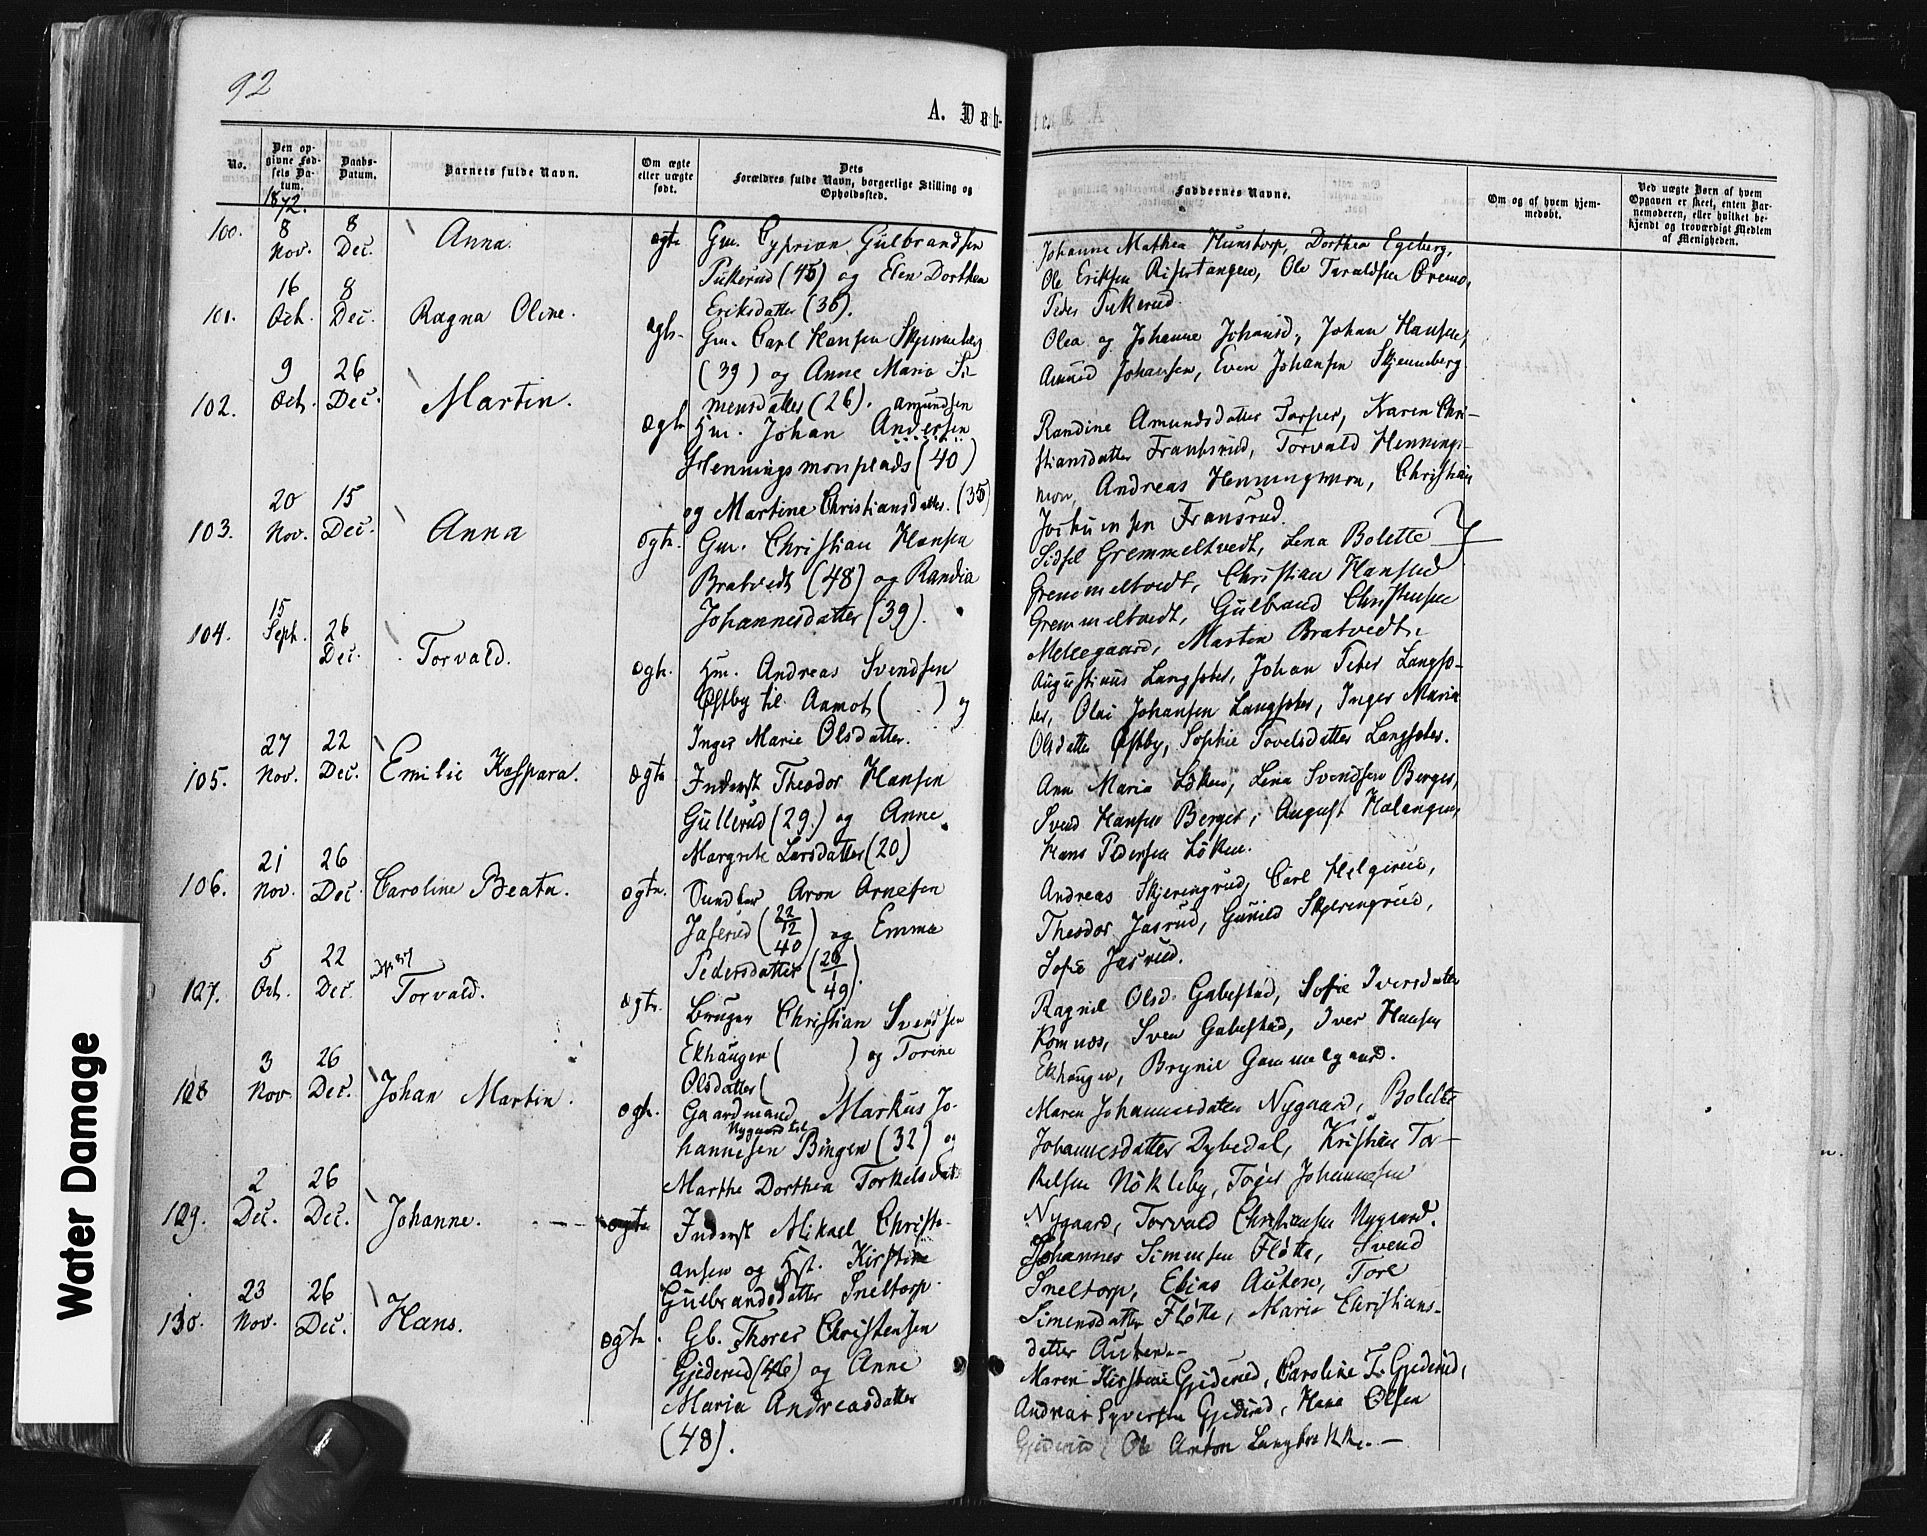 92
A. Døb-
No.
Den op-
givne Fød-
sels Da-
tum.
Daabs-
Datum.
Barnets fulde Navn.
Om ægte
eller uægte
født.
Dets
Forældres fulde Navn, borgerlige Stilling og
Opholdssted.
Faddernes Navne.
Om og af hvem hjem-
medøbt.
Ved uægte Børn af hvem
Opgaven er skeet, enten Bar-
nemoderen, eller hvilket be-
kjendt og troværdigt Medlem
af Menigheden.
1872.
100.
8
Nov.
8
Dec.
Anna.
ægte
Gm. Cyprian Gulbrandsen
Tukerud (45) og Elen Dorthea
Eriksdatter (36).
Johanne Mathea Hunstorp, Dorthea Egeberg,
Ole Eriksen Ristertangen, Ole Taraldsen Øremo,
Peder Tukerud.
101.
16
Oct.
8
Dec.
Ragna Oline.
ægte
Gm. Carl Hansen Skjenneberg
(39) og Anne Maria Si-
mensdatter (26).
Olea og Johanne Johansd., Johan Hansen,
Amund Johansen, Even Johansen Skjenneberg
102.
9
Oct.
26
Dec.
Martin.
ægte
Amundsen
Hm. Johan Andersen
Henningsmonplads (40)
og Martine Christiansdatter (35)
Randine Amundsdatter Torper, Karen Chri-
stiansdatter Fransrud, Torvald Hennings-
mon, Andreas Henningsmon, Christian
Jochumsen Fransrud.
103.
20
Nov.
15
Dec.
Anna
ægte.
Gm. Christian Hansen
Bratvedt (48) og Randia
Johannesdatter (39).
Sidsel Gremmeltvedt, Lena Bolette
Gremmeltvedt, Christian Hansen
Gremmeltvedt, Gulbrand Christensen
Mellegaard, Martin Bratvedt.
104.
15
Sept.
26
Dec.
Torvald.
ægte.
Hm. Andreas Svendsen
Østby til Aamot ( ) og
Inger Marie Olsdatter.
Augustinus Langseter, Johan Peter Langse-
ter, Olai Johansen Langseter, Inger Maria
Olsdatter Østby, Sophie Tovelsdatter Langseter.
105.
27
Nov.
22
Dec.
Emilie Kaspara.
ægte
Inderst Theodor Hansen
Gullerud (29) og Anne
Margrete Larsdatter (20)
Ann Maria Löken, Lena Svendsen Berger,
Svend Hansen Berger, August Halangen,
Hans Pedersen Löken.
106.
21
Nov.
26
Dec.
Caroline Beata.
ægte.
Aron Arnesen
Jaserud (22/12 40) og Emma
Pedersdatter (26/1 49).
Andreas Skjeringrud, Carl Helgerud,
Theodor Jasrud, Gunild Skjeringrud,
Sofie Jasrud.
127.
5
Oct.
22
Dec.
Torvald.
ægte.
Bruger Christian Svendsen
Ekhaugen ( ) og Torine
Olsdatter (
Ragnil Olsd. Gabestad, Sofie Iversdatter
Romnes, Sven Gabestad, Iver Hansen
Ekhaugen, Brynil Gammelgaard.
128
3
Nov.
26
Dec.
Johan Martin.
ægte.
Gaardmand Markus Jo-
Nygaard til
hannesen Bingen (32) og
Marthe Dorthea Torkelsdat
Maren Johannesdatter Nygaard, Bolette
Johannesdatter Dybedal, Kristian Tor-
kelsen Nökleby, Töger Johannesen
Nygaard, Torvald Christiansen Nygaard.
129.
2
Dec.
26
Dec.
Johanne.
ægte
Inderst Mikael Christi-
ansen og Hst. Kirstine
Gulbrandsdatter Sneltorp.
Johannes Simensen Flötta, Svend
Sneltorp, Elias Auken, Tore
Simensdatter Flötta, Maria Christians-
datter Auken.
130.
23
Nov.
26
Dec.
Hans.
ægte.
Gb. Thorer Christensen
Gjiderud (46) og Anne
Maria Andreasdatter
(48).
Maren Kirstine Gjiderud, Caroline T. Gjiderud,
Andreas Syversen Gjiderud, Hans Olsen
Gjiderud, Ole Anton Langbrekke.
Water Damage